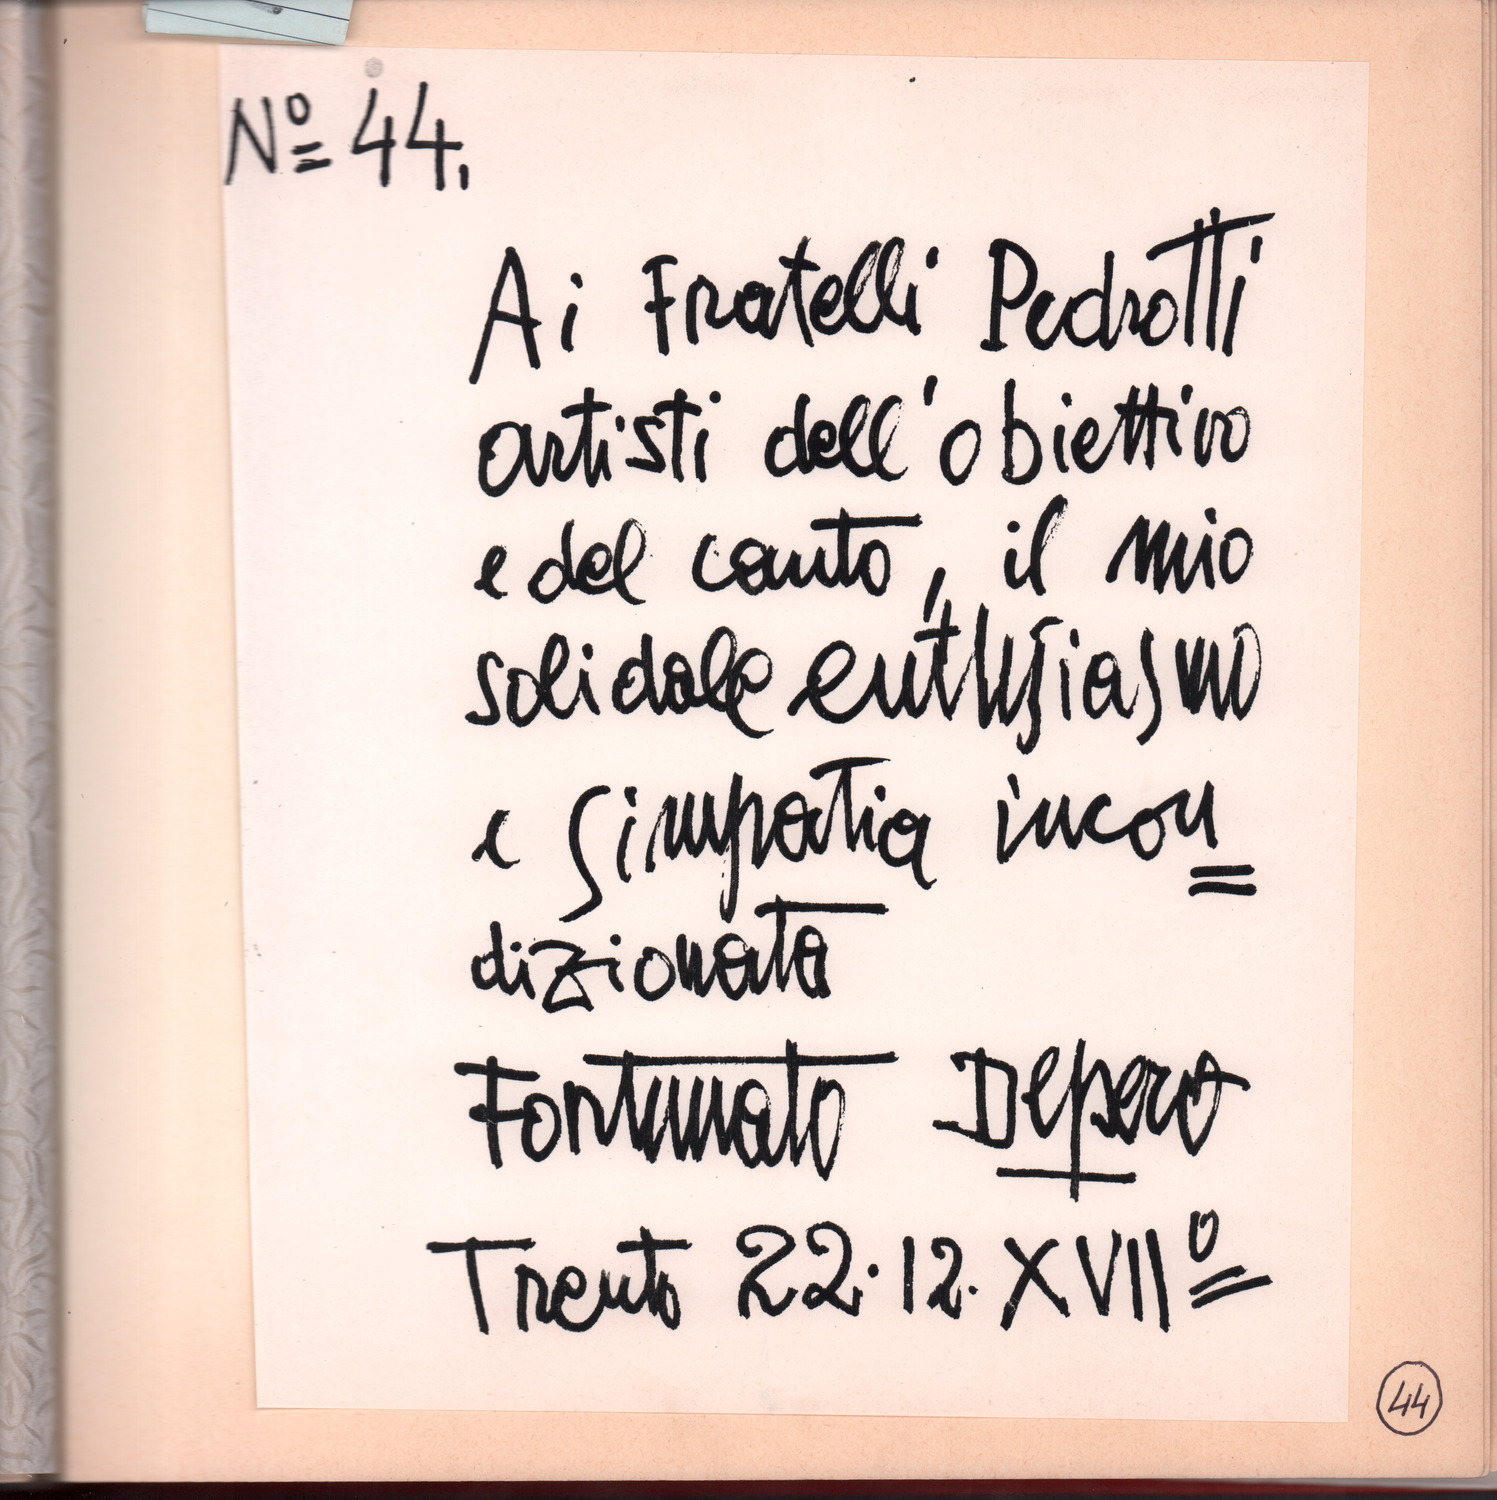 Nº 44.
Ai Fratelli Pedrotti
artisti dell'obiettivo
e del canto, il mio
solidale enthusiasmo
e simpatia incon=
dizionata
Fortunato Depero
Trento 22.12.XVIIº
44